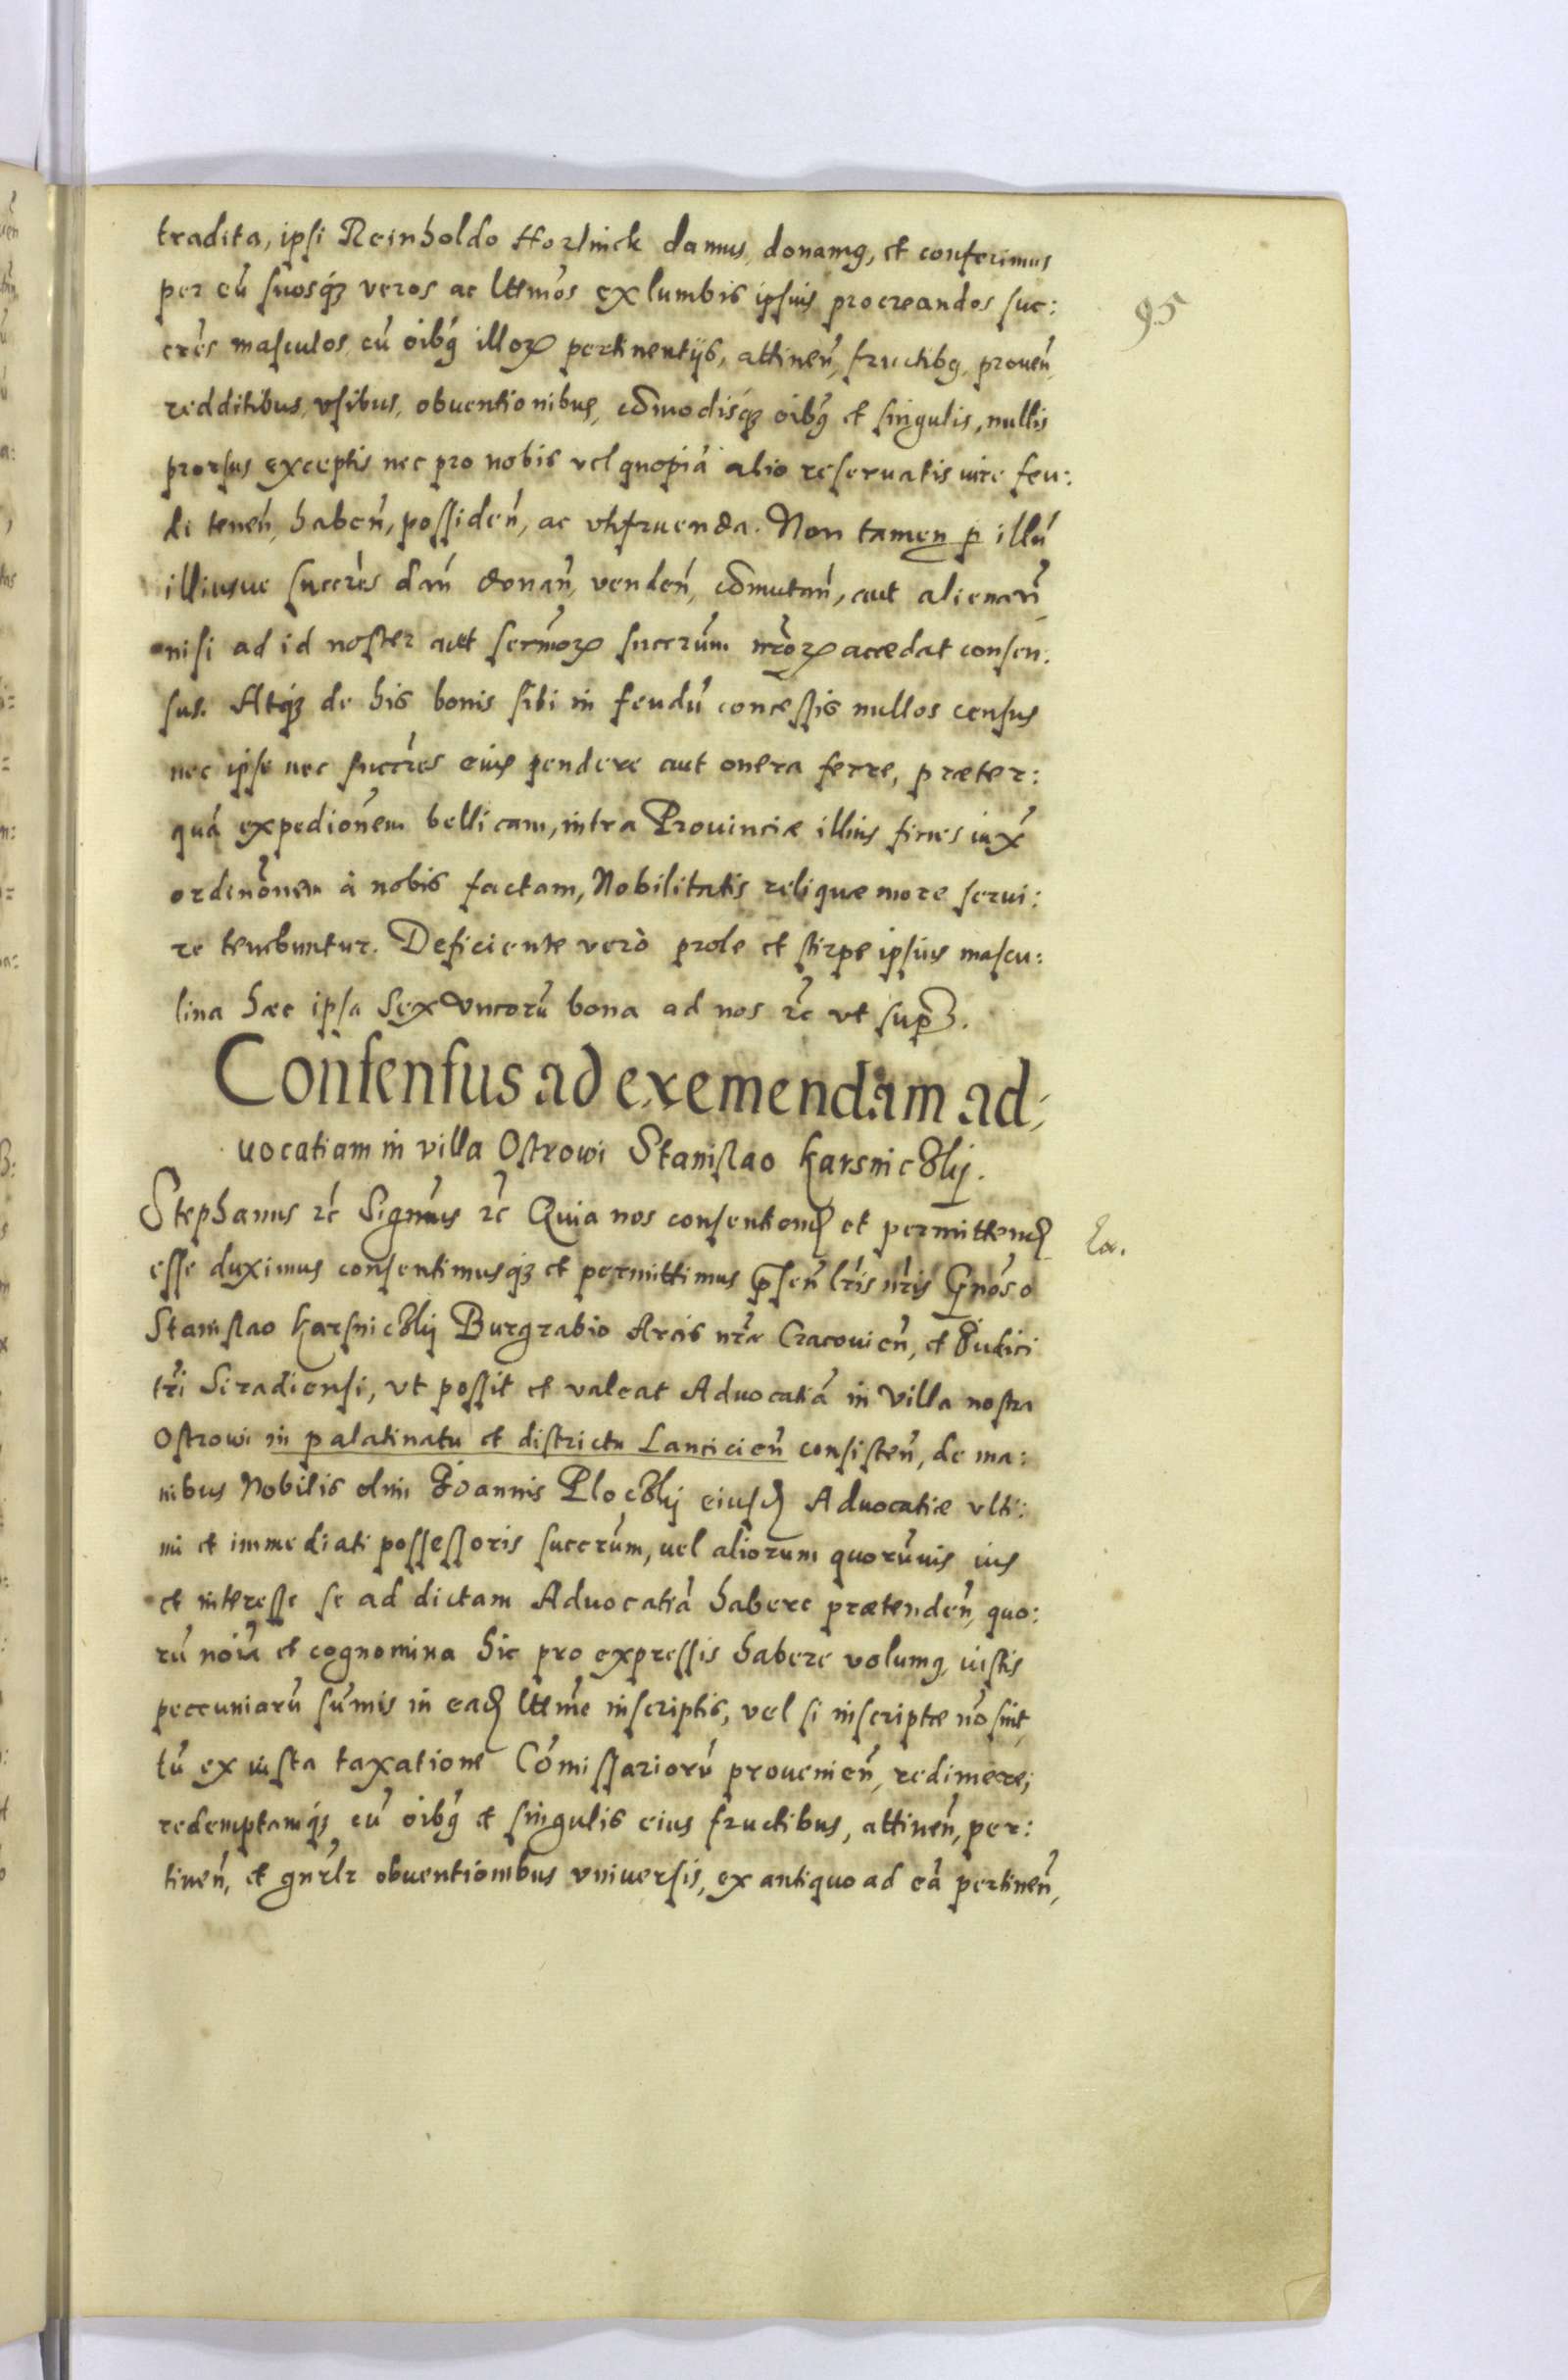 95
tradita, ipsi Reinholdo Horlinck damus, donamꝰ, et conferimus
per eū suosqꝫ veros ac lttīmos ex lumbis ipsius procreandos suc:
crēs masculos, cū oībꝰ illoꝝ pertinentijs, attineñ, fructibꝰ, proueñ,
redditibus, vsibus, obuentionibus, cōmodisqꝫ oībꝰ et singulis, nullis
prorsus exceptis nec pro nobis vel quopiā alio reseruatis iure feu:
di teneñ, habeñ, possideñ, ac vtifruenda. Non tamen ꝑ illū
illiusue succr̄es dañ donañ, vendeñ, cōmutañ, aut alienañ
nisi ad id noster aut serm̄oꝝ succr̄um nr̄oꝝ accedat consen:
sus. Atqꝫ de his bonis sibi in feudū concessis nullos census
nec ipse nec succr̄es eius pendere aut onera ferre, præter:
quā expediōnem bellicam, intra Prouinciæ illius fines iux̄
ordinōnem à nobis factam, Nobilitatis reliquæ more serui:
re tenebuntur. Deficiente verò prole et stirpe ipsius mascu:
lina hæc ipsa Sex Vncorū bona ad nos ꝛc̄ vt supꝫ.
Consensus ad exemendam ad,
uocatiam in villa Ostrowi Stanislao Karsniczkij.
Stephanus ꝛc̄ Signūs ꝛc̄ Quia nos consentienḍ et permittenḍ
La.
esse duximus consentimusqꝫ et permittimus p̄señ lr̄is nr̄is Gn̄oso
Stanislao Karsniczkij Burgrabio Arcis nr̄æ Cracouieñ, et Judici
tr̄i Siradiensi, vt possit et valeat Aduocatiā in Villa nostra
Ostrowi in palatinatu et districtu Lancicieñ consisteñ, de ma:
nibus Nobilis olim Joannis Ploczkij eiusḍ Aduocatiæ vlti:
mi et immediati possessoris succr̄um, vel aliorum quorūuis ius
et interesse se ad dictam Aduocatiā habere prætendeñ, quo:
rū noīa et cognomina hic pro expressis habere volumꝰ, iustis
peccuniarū sūmis in eaḍ lttīme inscriptis, vel si inscriptæ nō sint,
tū ex iusta taxatione Cōmissariorū prouenieñ, redimere;
redemptamqꝫ cū oībꝰ et singulis eius fructibus, attineñ, per:
tineñ, et gnr̄lr obuentionibus vniuersis, ex antiquo ad eā pertineñ,